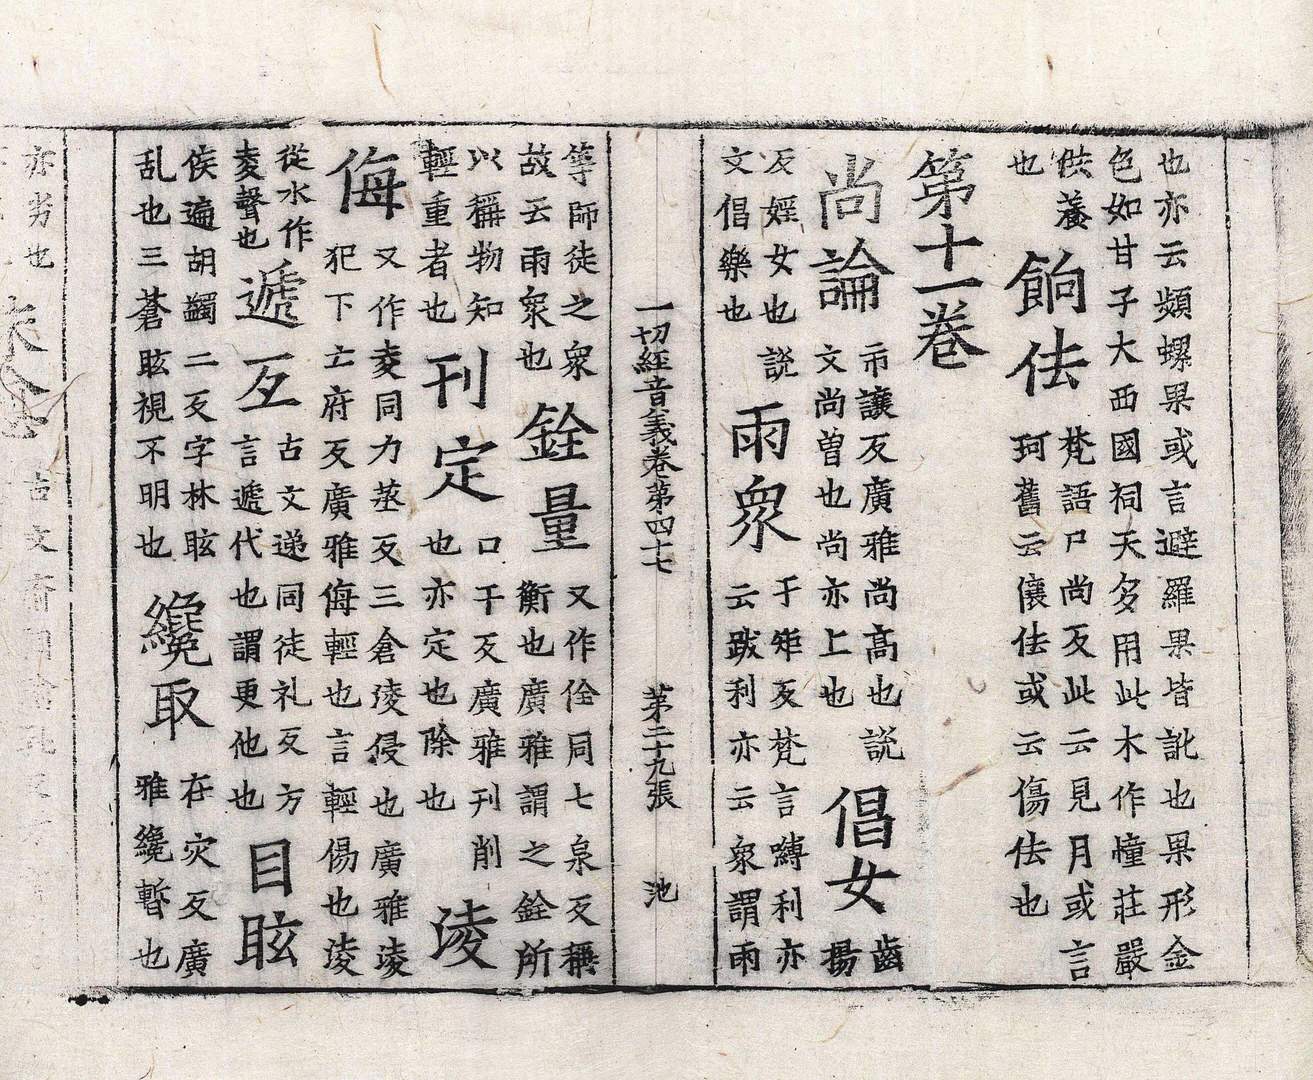 也亦云頻螺果或言避羅果皆訛也果形金
色如甘子大西國祠天多用此木作幢莊嚴
供養
也
餉佉
梵語尸尚反此云見月或言
珂舊云儴佉或云傷佉也
第十一卷
尚論
市讓反廣雅尚高也説
文尚曽也尚亦上也
倡女
齒
揚
反婬女也説
文倡樂也
雨衆
于矩反梵言嚩利亦
云跋利亦云衆謂雨
一切經音義卷第四十七 第二十九張 池
等師徒之衆
故云雨衆也
銓量
又作佺同七泉反稱
衡也廣雅謂之銓所
以稱物知
輕重者也
刊定
口干反廣雅刊削
也亦定也除也
淩
侮
又作夌同力蒸反三倉淩侵也廣雅淩
犯下亡府反廣雅侮輕也言輕傷也淩
從水作
夌聲也
遞互
古文递同徒礼反方
言遞代也謂更他也
目眩
侯遍胡蠲二反字林眩
乱也三蒼眩視不明也
纔取
在灾反廣
雅纔暫也
亦劣也
古文